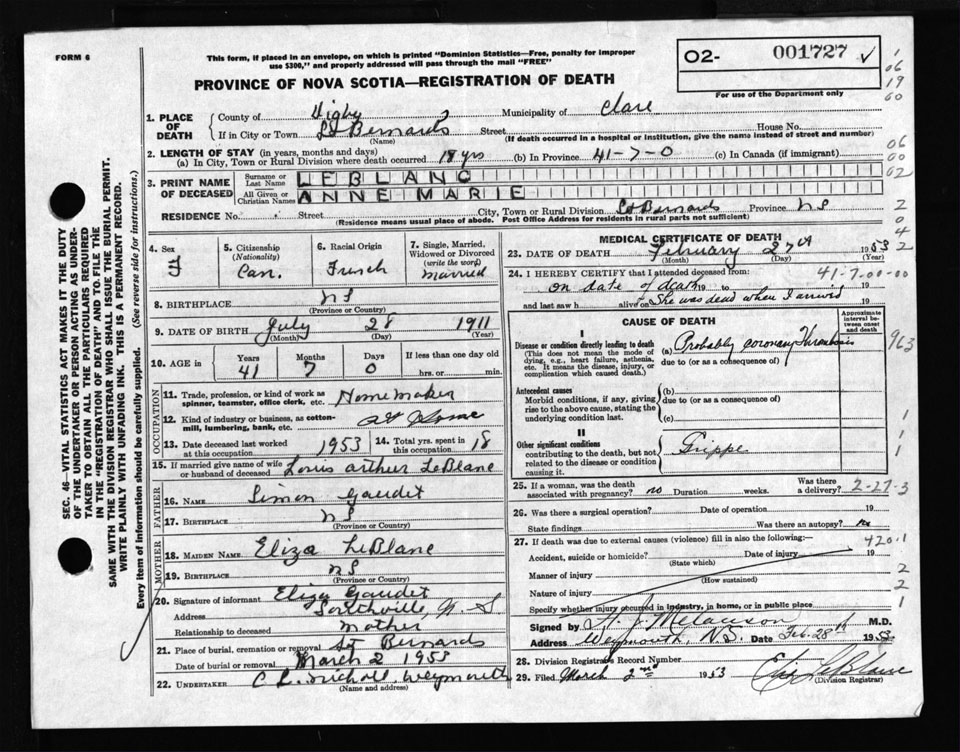 FORM 6
This form, if placed in an envelope, on which is printed "Dominion Statistics—Free, penalty for improper
use $300," and properly addressed will pass through the mail "FREE"
PROVINCE OF NOVA SCOTIA—REGISTRATION OF DEATH
O2- 001727
For use of the Department only
SEC. 46—VITAL STATISTICS ACT MAKES IT THE DUTY
OF THE UNDERTAKER OR PERSON ACTING AS UNDER-
TAKER TO OBTAIN ALL THE PARTICULARS REQUIRED
IN THE "REGISTRATION OF DEATH" AND TO FILE THE
SAME WITH THE DIVISION REGISTRAR WHO SHALL ISSUE THE BURIAL PERMIT.
WRITE PLAINLY WITH UNFADING INK. THIS IS A PERMANENT RECORD.
Every item of information should be carefully supplied. (See reverse side for instructions.)
1. PLACE OF DEATH County of Digby Municipality of Clare
If in City or Town St Bernards Street House No.
(Name) (If death occurred in a hospital or institution, give the name instead of street and number)
2. LENGTH OF STAY (in years, months and days)
(a) In City, Town or Rural Division where death occurred 18 yrs (b) In Province 41-7-0 (c) In Canada (if immigrant)
3. PRINT NAME OF DECEASED Surname or Last Name LEBLANC
All Given or Christian Names ANNE MARIE
RESIDENCE No. Street City, Town or Rural Division St Bernards Province NS
(Residence means usual place of abode. Post Office Address for residents in rural parts not sufficient)
4. Sex F
5. Citizenship (Nationality) Can.
6. Racial Origin French
7. Single, Married, Widowed or Divorced (write the word) Married
8. BIRTHPLACE NS
(Province or Country)
9. DATE OF BIRTH July 28 1911
(Month) (Day) (Year)
10. AGE in Years 41 Months 7 Days 0 If less than one day old hrs. or min.
OCCUPATION
11. Trade, profession, or kind of work as spinner, teamster, office clerk, etc. Homemaker
12. Kind of industry or business, as cotton-mill, lumbering, bank, etc. at Home
13. Date deceased last worked at this occupation 1953 14. Total yrs. spent in this occupation 18
15. If married give name of wife or husband of deceased Louis Arthur LeBlanc
FATHER
16. NAME Simon Gaudet
17. BIRTHPLACE NS
(Province or Country)
MOTHER
18. MAIDEN NAME Eliza LeBlanc
19. BIRTHPLACE NS
(Province or Country)
20. Signature of informant Eliza Gaudet
Address Southville, N.S
Relationship to deceased Mother
21. Place of burial, cremation or removal St Bernards
Date of burial or removal March 2 1953
22. UNDERTAKER C L. Nicholl, Weymouth
(Name and address)
MEDICAL CERTIFICATE OF DEATH
23. DATE OF DEATH February 27th 1953
(Month) (Day) (Year)
24. I HEREBY CERTIFY that I attended deceased from: 41-7-00-00
on date of death 19 to 19
and last saw h alive on She was dead when I arrived 19
CAUSE OF DEATH
Approximate interval between onset and death
I
Disease or condition directly leading to death (a) Probably coronary thrombosis 963
(This does not mean the mode of dying, e.g., heart failure, asthenia, etc. It means the disease, injury, or complication which caused death.) due to (or as a consequence of)
Antecedent causes (b)
Morbid conditions, if any, giving rise to the above cause, stating the underlying condition last. due to (or as a consequence of)
(c)
II
Other significant conditions contributing to the death, but not related to the disease or condition causing it. Grippe
25. If a woman, was the death associated with pregnancy? no Duration weeks. Was there a delivery? 2-27-3
26. Was there a surgical operation? Date of operation 19
State findings Was there an autopsy? no
27. If death was due to external causes (violence) fill in also the following: 420.1
Accident, suicide or homicide? Date of injury 19
(State which)
Manner of injury
(How sustained)
Nature of injury
Specify whether injury occurred in industry, in home, or in public place
Signed by H. J. Melanson M.D.
Address Weymouth, N.S. Date Feb. 28th 1953
28. Division Registrars Record Number
29. Filed March 2nd 1953 LeBlanc
(Division Registrar)